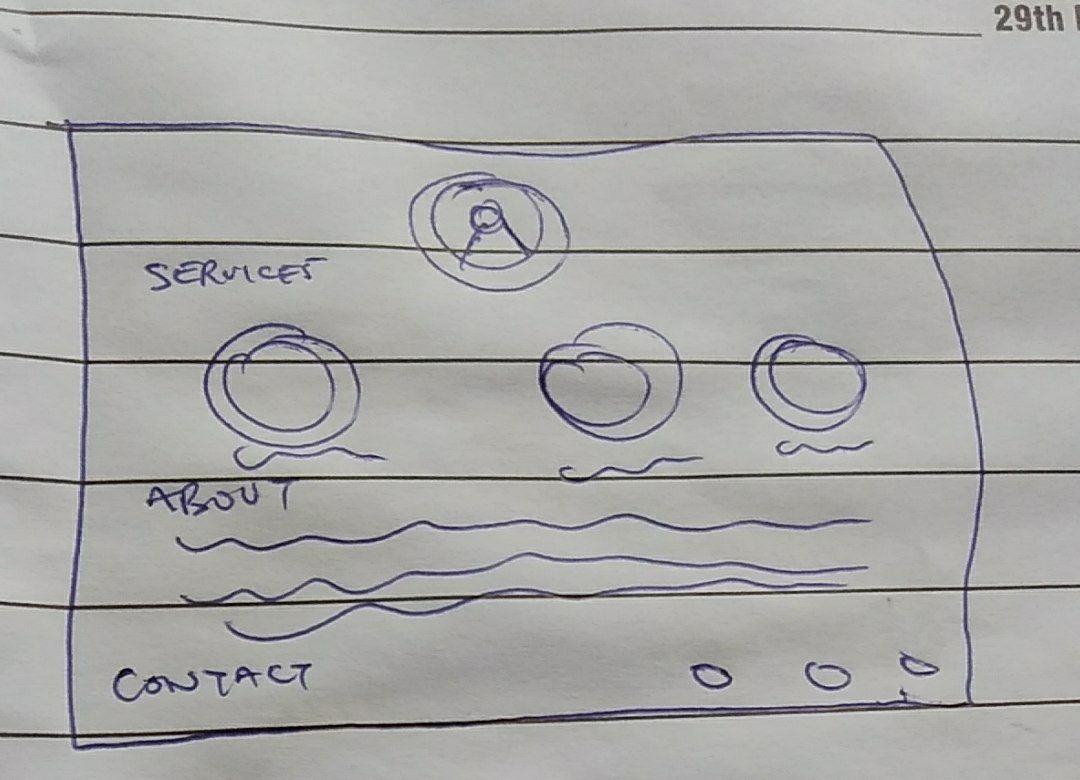 29th
SERVICES
ABOUT
CONTACT